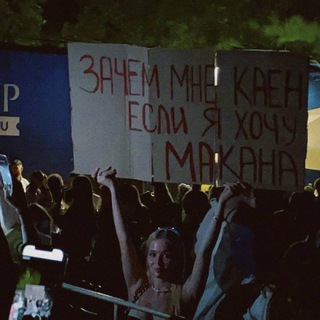 ЗАЧЕМ МНЕ КАЕН
ЕСЛИ Я ХОЧУ
МАКАНА